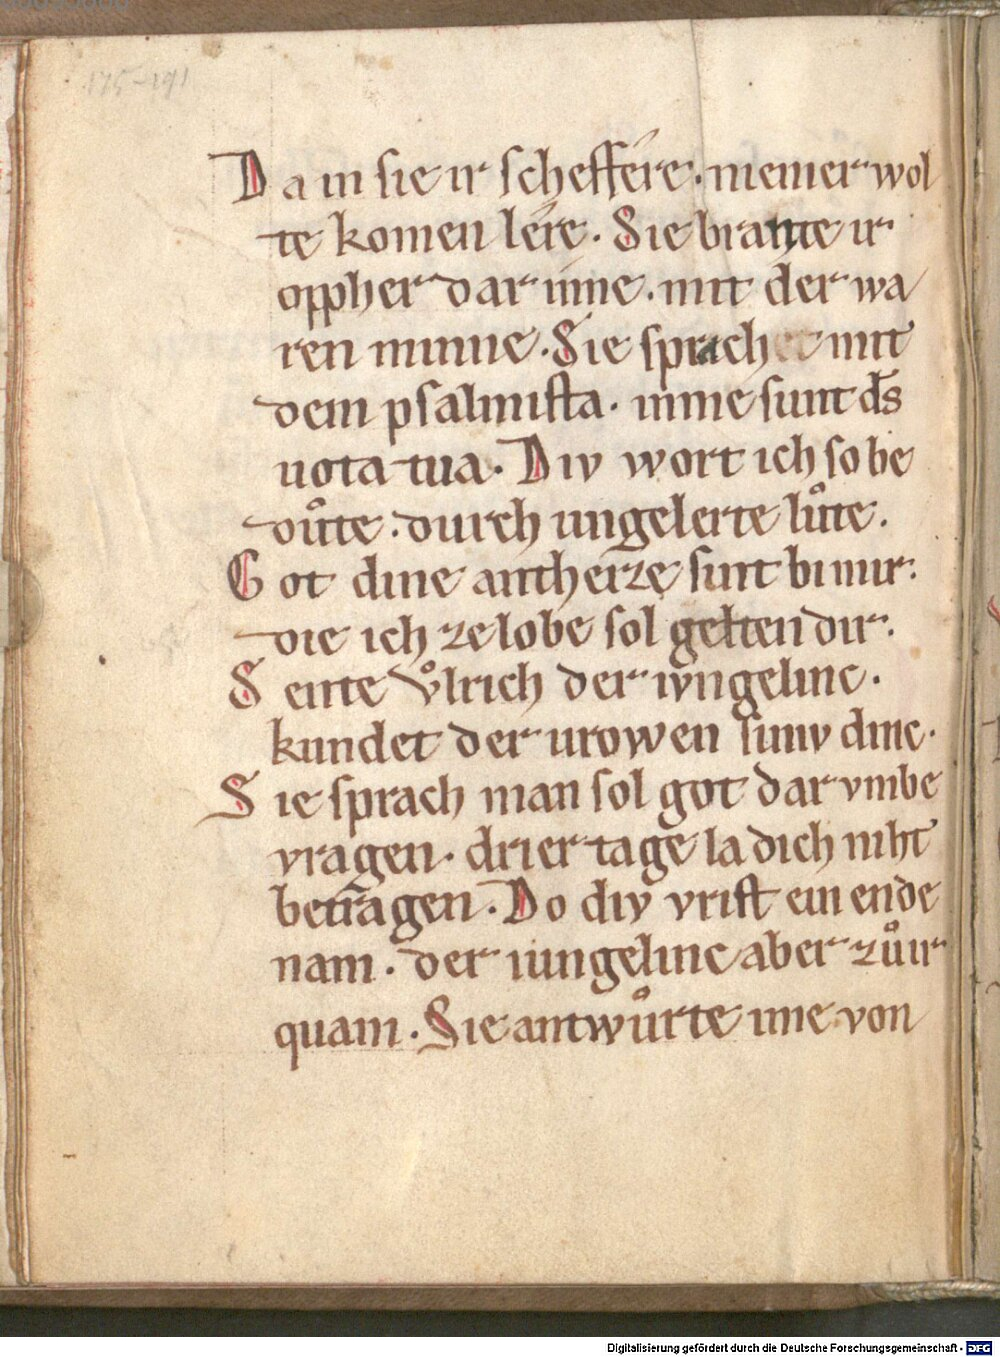 175-191
Da in sie ir scheffére. niemer wol
te komen lére. Sie brante ir
oppher dar inne. mit der wa
ren minne. Sie sprach mit
dem psalmista. in me sunt dˉs
uota tua. Div wort ich so be
duͦte. durch ungelerte luͦte.
Got dine antheize sint bi mir.
die ich ze lobe sol gelten dir.
Sente Vͦlrich der ivngelinc.
kundet der urowen siniv dinc.
Sie sprach man sol got dar vmbe
vragen. drier tage la dich niht
betragen. Do div vrist ein ende
nam. der iungelinc aber zuͦ ir
quam. Sie antwuͦrte ime von
Digitalisierung gefördert durch die Deutsche Forschungsgemeinschaft - DFG